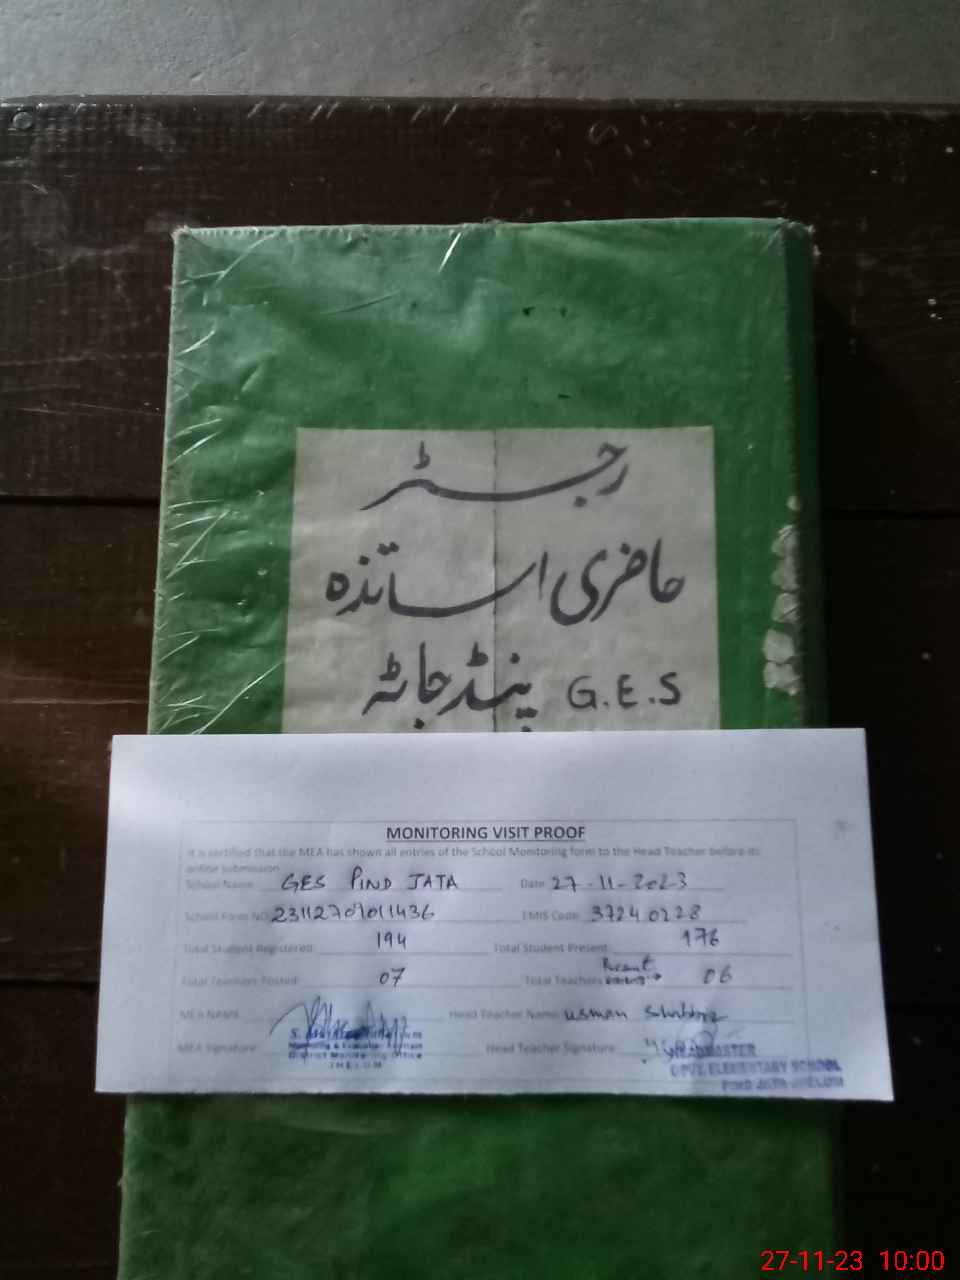 رجسٹر
حاضری اساتذہ
G.E.S پنڈ جاٹہ
MONITORING VISIT PROOF
It is certified that the MEA has shown all entries of the School Monitoring form to the Head Teacher before its
online submission
School Name GES PIND JATA Date 27-11-2023
School Form NO 23112709011436 EMIS Code 37240228
Total Student Registered 194 Total Student Present 176
Total Teachers Posted 07 Total Teachers Present 06
MEA NAME Head Teacher Name usman Shabbir
MEA Signature Head Teacher Signature
Monitoring & Evaluation
District Monitoring Office
JHELUM
HEADMASTER
GOVT. ELEMENTARY SCHOOL
PIND JATA JHELUM
27-11-23 10:00